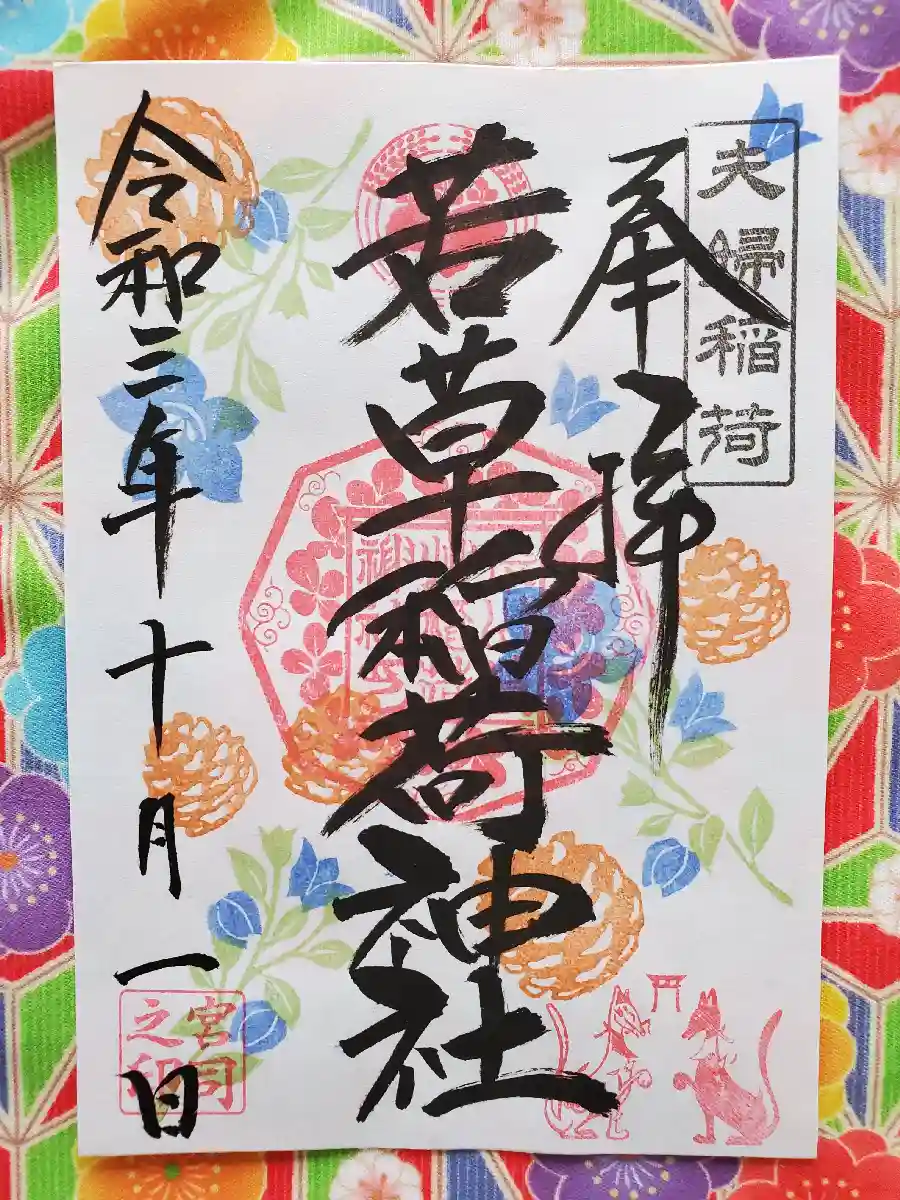 夫婦稲荷
奉拝
若草稲荷神社
令和二年十月一日
宮司
之印